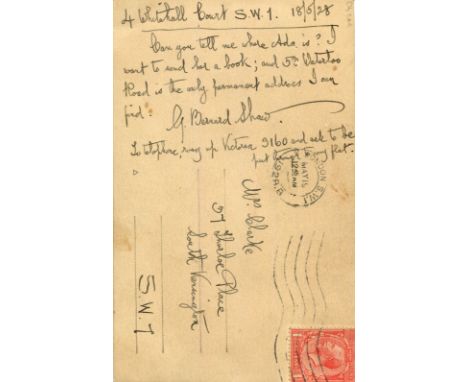 4 Whitehall Court S.W.1. 18/5/28
Can you tell me where Ada is? I
want to send her a book; and 5 Waterloo
Road is the only permanent address I can
find.
G. Bernard Shaw.
To telephone, ring up Victoria 3160 and ask to be
put through to my flat.
LONDON. S.W.1
Mrs Clarke
37 Thurloe Place
South Kensington
S.W.7